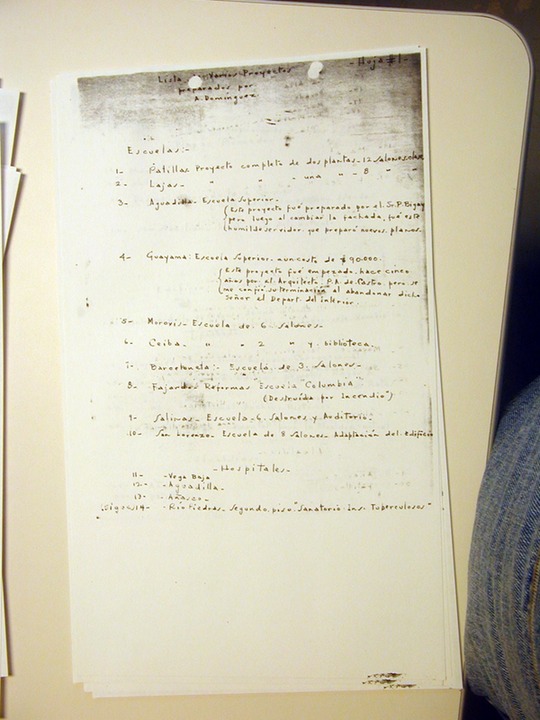 - Hoja #1 -
Lista Varios Proyectos
preparados por
A. Dominguez
Escuelas:-
1- Patillas Proyecto completo de dos plantas - 12 salones clase
2- Lajas - " " " una " - 8 " "
3- Aguadilla - Escuela Superior -
(Este proyecto fué preparado por el Sr. P. Bigay
pero luego al cambiar la fachada, fué este
humilde servidor que preparó nuevos planos.
4- Guayama: Escuela Superior - a un costo de $90.000.
(Este proyecto fué empezado hace cinco
años por el Arquitecto P.A. de Castro pero se
me confió su terminación al abandonar dicho
Señor el Depart. del Interior.
5- Morovis - Escuela de 6 salones -
6- Ceiba " " 2 " y biblioteca.
7- Barceloneta:- Escuela de 3 salones -
8- Fajardo = Reformas "Escuela Columbia"
(Destruída por Incendio")
9- Salinas - Escuela - 6 Salones y Auditorio -
10- San Lorenzo - Escuela de 8 Salones - Adaptación del edificio
- Hospitales -
11- - Vega Baja
12- - Aguadilla -
13- - Añasco -
Sigue 14- - Rio Piedras - segundo piso "Sanatorio Ins. Tuberculosos"